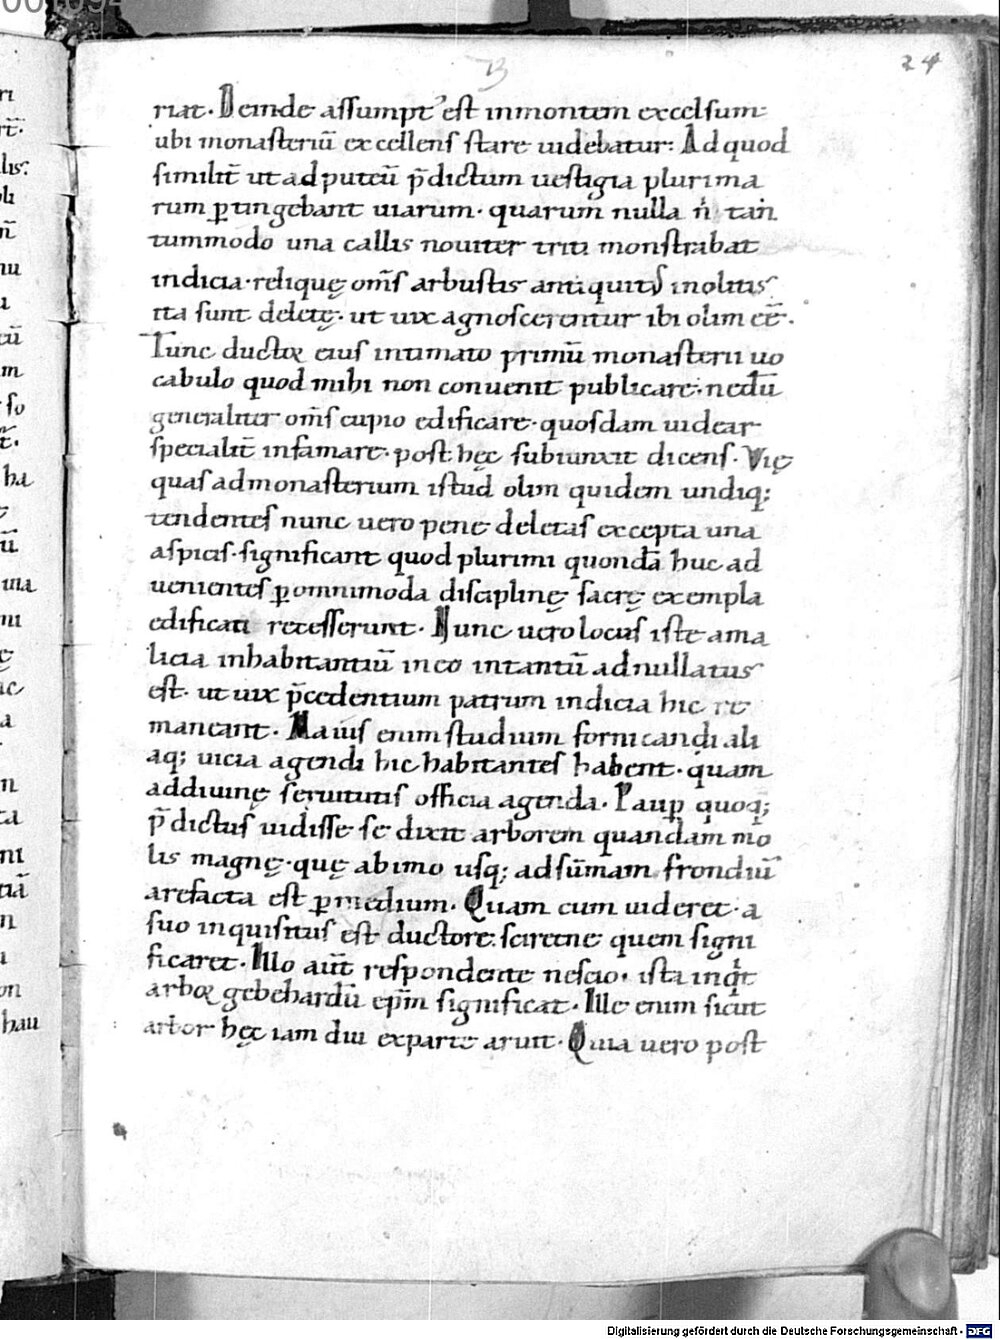 13
24
riat. Deinde assumpt' est inmontem excelsum
ubi monasteriū excellens stare uidebatur. Ad quod
similit̄ ut ad puteū p̄dictum uestigia plurima
rum ꝑtingebant uiarum. quarum nulla n̄ tan
tummodo una callis nouiter triti monstrabat
indicia. reliquę om̄s arbustis antiquit' inolitis
ita sunt deletę. ut uix agnoscerentur ibi olim eē.
Tunc ductoꝝ eius intimato primū monasterii uo
cabulo quod mihi non conuenit publicare. nedū
generaliter om̄s cupio edificare. quosdam uidear
specialit̄ infamare. post hęc subiunxit dicens. Vię
quas ad monasterium istud olim quidem undiq;
tendentes nunc uero pene deletas excepta una
aspicis. significant quod plurimi quondā huc ad
uenientes ꝑ omnimoda disciplinę sacrę exempla
edificati recesserunt. Nunc uero locus iste a ma
licia inhabitantiū in eo intantū adnullatus
est. ut uix p̄cedentium patrum indicia hic re
maneant. Maius enim studium fornicandi ali
aq; uicia agendi hic habitantes habent. quam
ad diuinę seruitutis officia agenda. Pauꝑ quoq;
p̄dictus uidisse se dixit arborem quandam mo
lis magnę. quę ab imo usq; ad sūmam frondiū
arefacta est ꝑ medium. Quam cum uideret. a
suo inquisitus est ductore. sciretne quem signi
ficaret. Illo aut̄ respondente nescio. ista inqͥt
arboꝝ gebehardū ep̄m significat. Ille enim sicut
arbor hęc iam diu ex parte aruit. Quia uero post
Digitalisierung gefördert durch die Deutsche Forschungsgemeinschaft - DFG